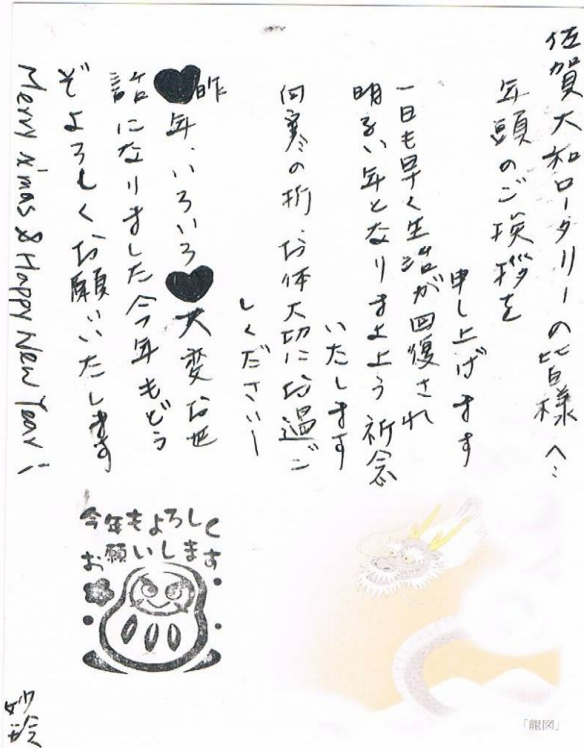 佐賀大和ロータリーの皆様へ:
年頭のご挨拶を
申し上げます
一日も早く生活が回復され
明るい年となりまよう祈念
いたします
向寒の折、お体大切にお過ご
しくださいー
昨年、いろいろ大変お世
話になりました今年もどう
ぞよろしくお願いいたします
Merry x'mas & Happy New Year!
今年もよろしく
お願いします
「龍図」
妙玲